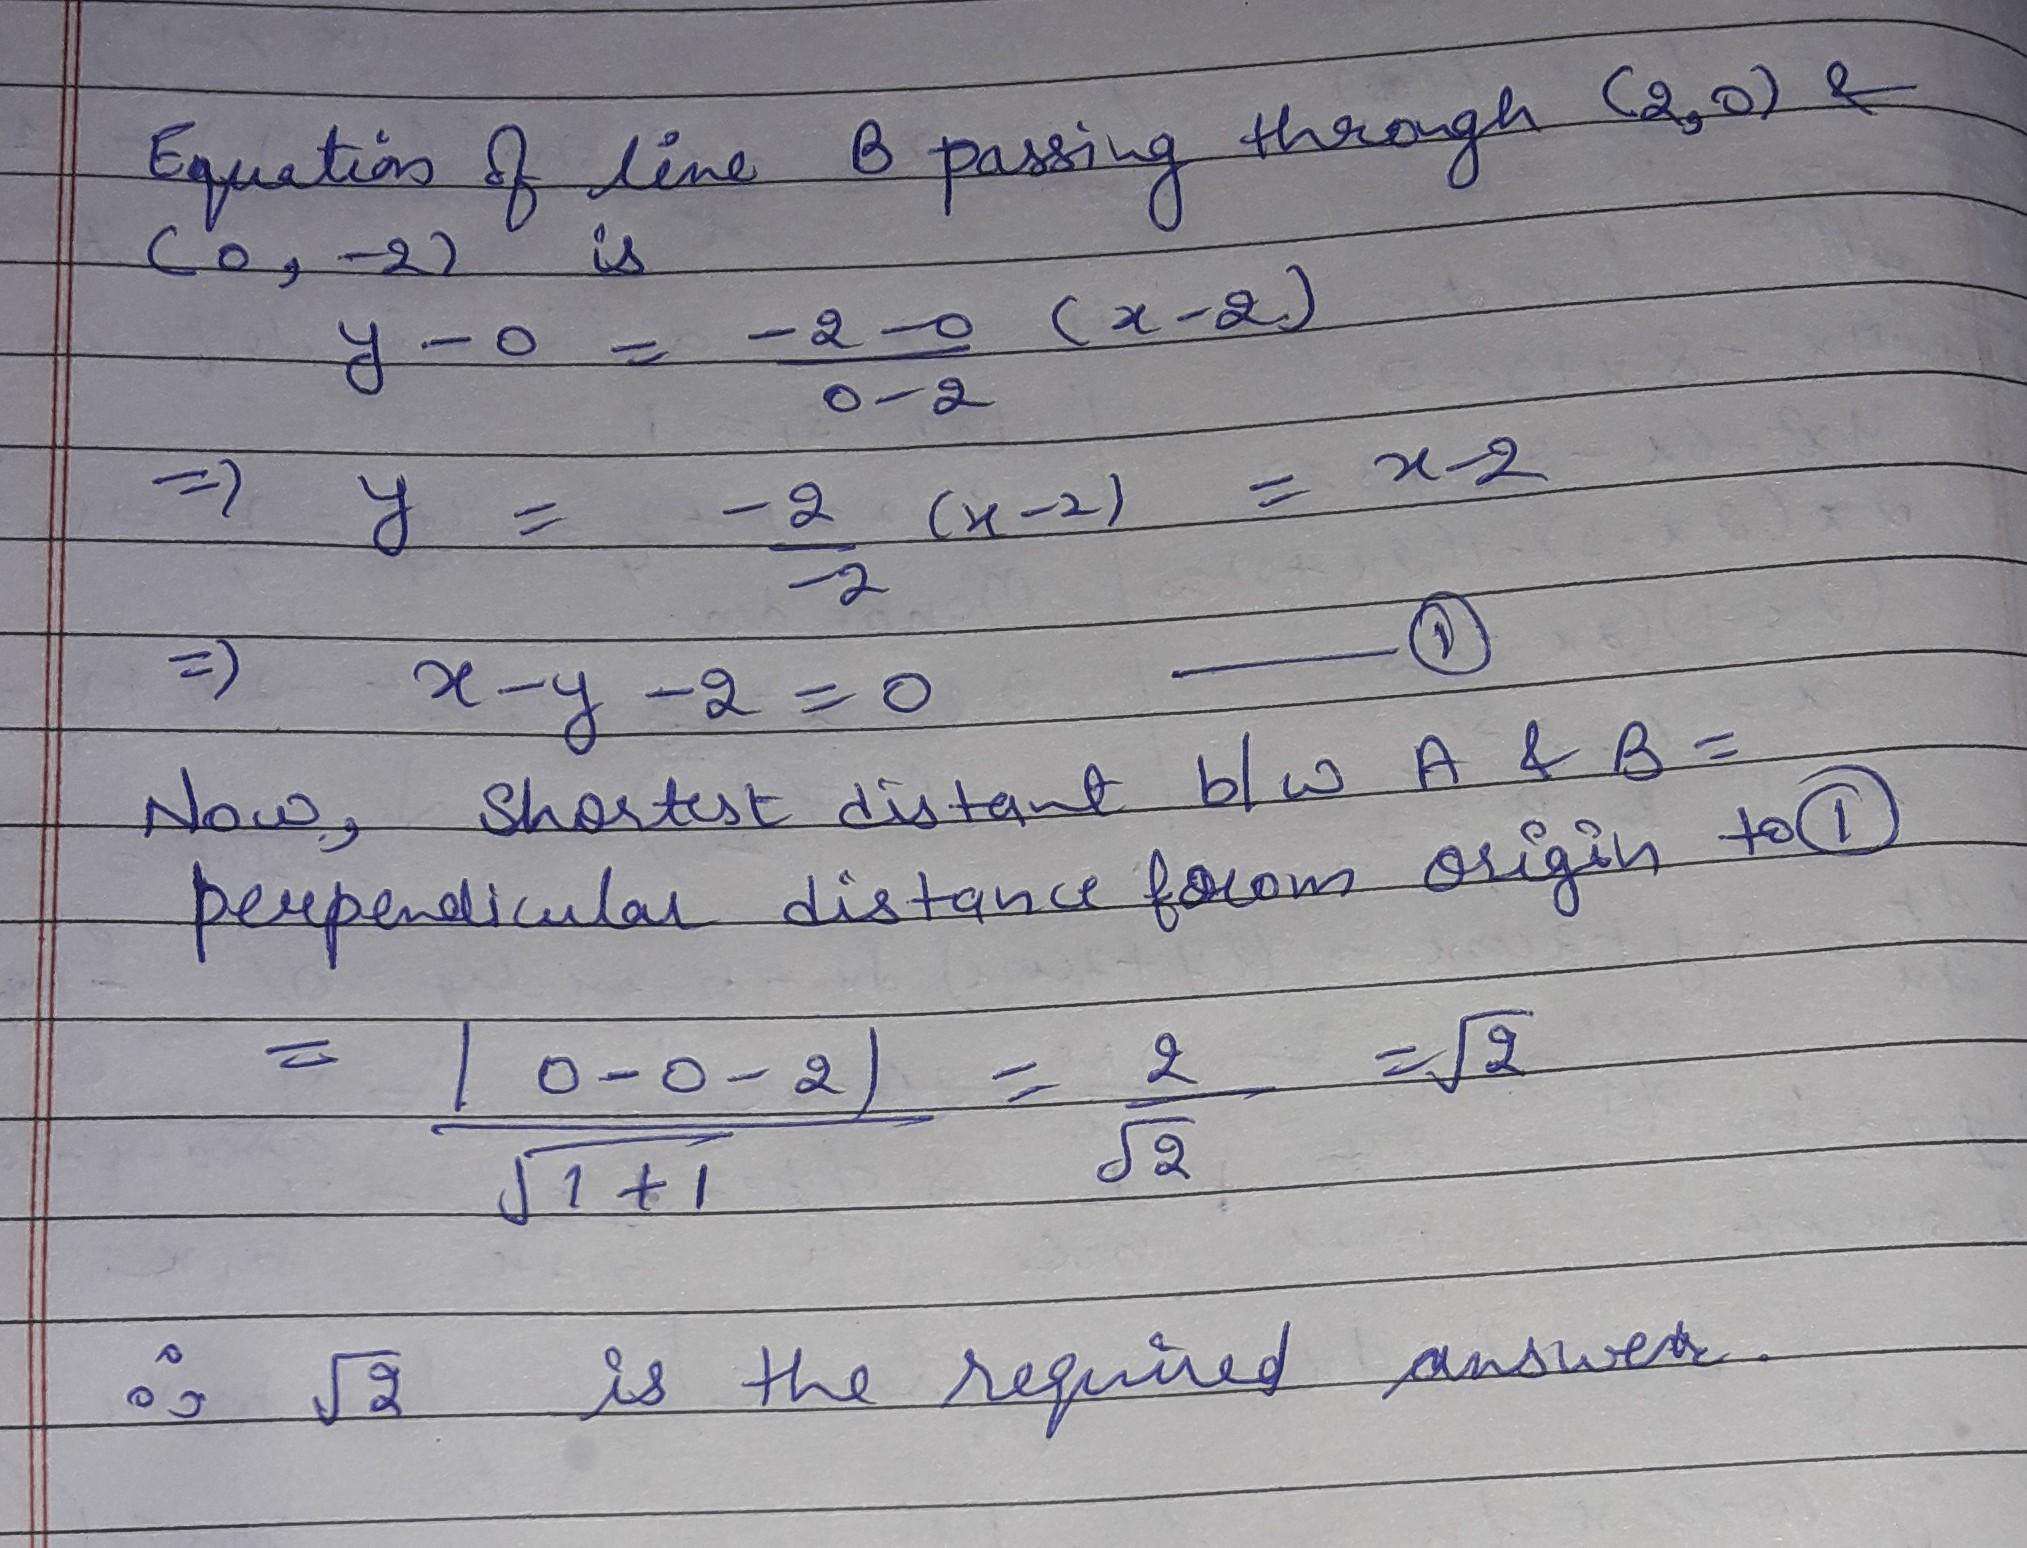 Equation of line B passing through (2,0) &
(0, -2) is
y - 0 = -2-0/0-2 (x-2)
=) y = -2/-2 (x-2) = x-2
=) x-y-2=0 —— ①
Now, Shortest distant b/w A & B =
perpendicular distance from origin to ①
= |0-0-2|/√1+1 = 2/√2 = √2
∴ √2 is the required answer.